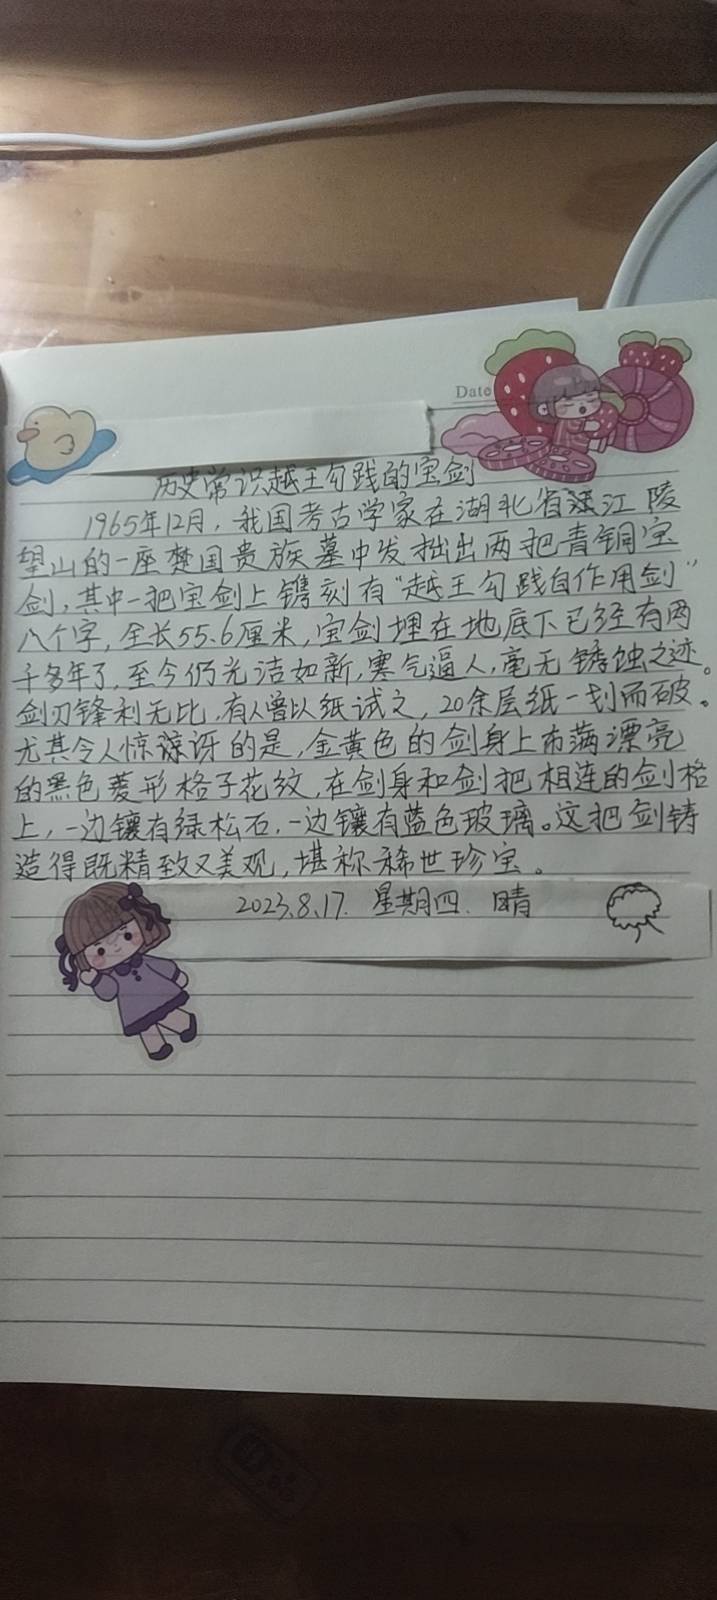 Date
历史常识越王勾践的宝剑
1965年12月，我国考古学家在湖北省江陵
望山的一座楚国贵族墓中发拙出两把青铜宝
剑，其中一把宝剑上镌刻有“越王勾践自作用剑”
八个字，全长55.6厘米，宝剑埋在地底下已经有两
千多年了，至今仍光洁如新，寒气逼人，毫无锈蚀之迹。
剑刃锋利无比，有人曾以纸试之，20余层纸一划而破。
尤其令人惊讶的是，金黄色的剑身上布满漂亮
的黑色菱形格子花纹，在剑身和剑把相连的剑格
上，一边镶有绿松石，一边镶有蓝色玻璃。这把剑铸
造得既精致又美观，堪称稀世珍宝。
2023.8.17. 星期四. 晴